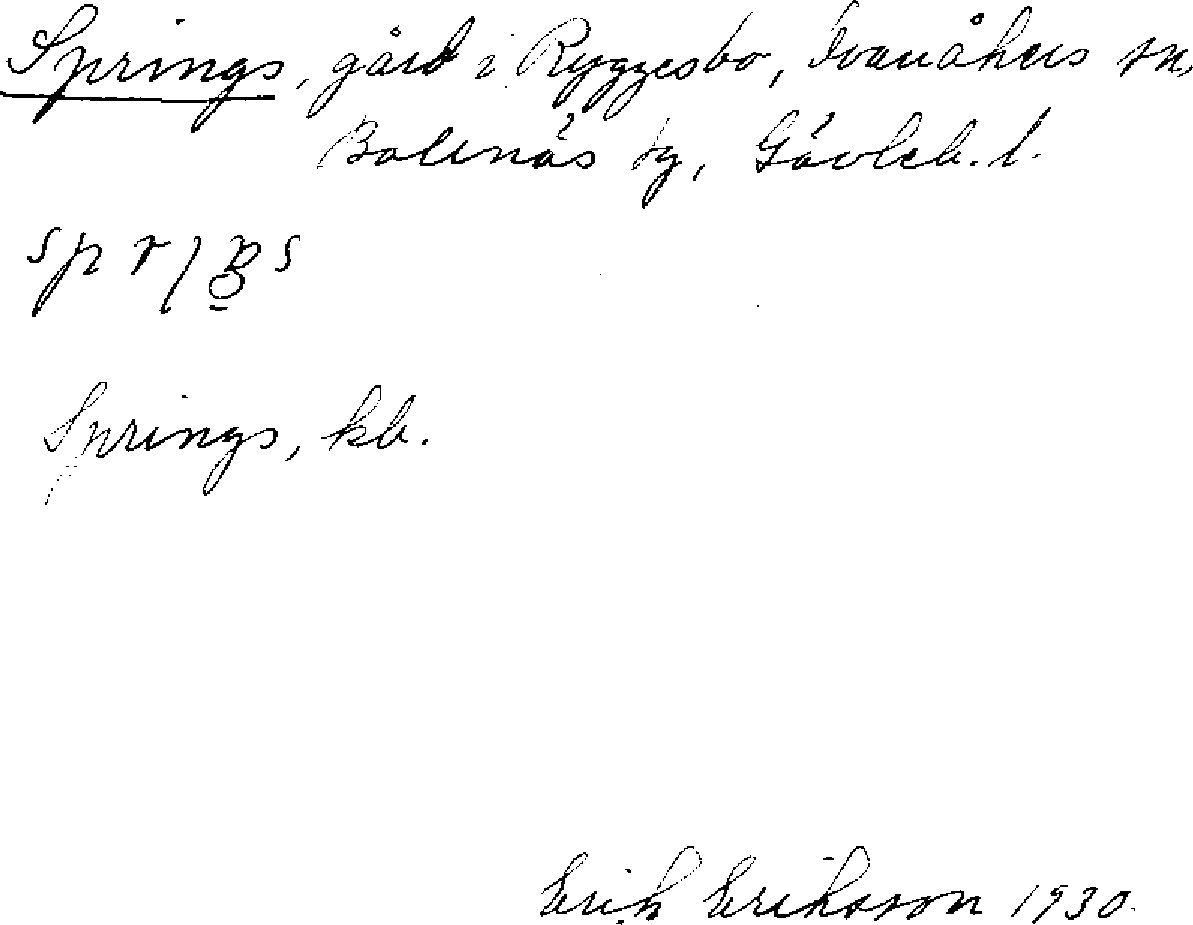 Springs, gård i Ryggesbo, Svanåkers sn,
Bollnäs tg, Gävleb. l.
Springs, kb.
Erik Eriksson 1930.